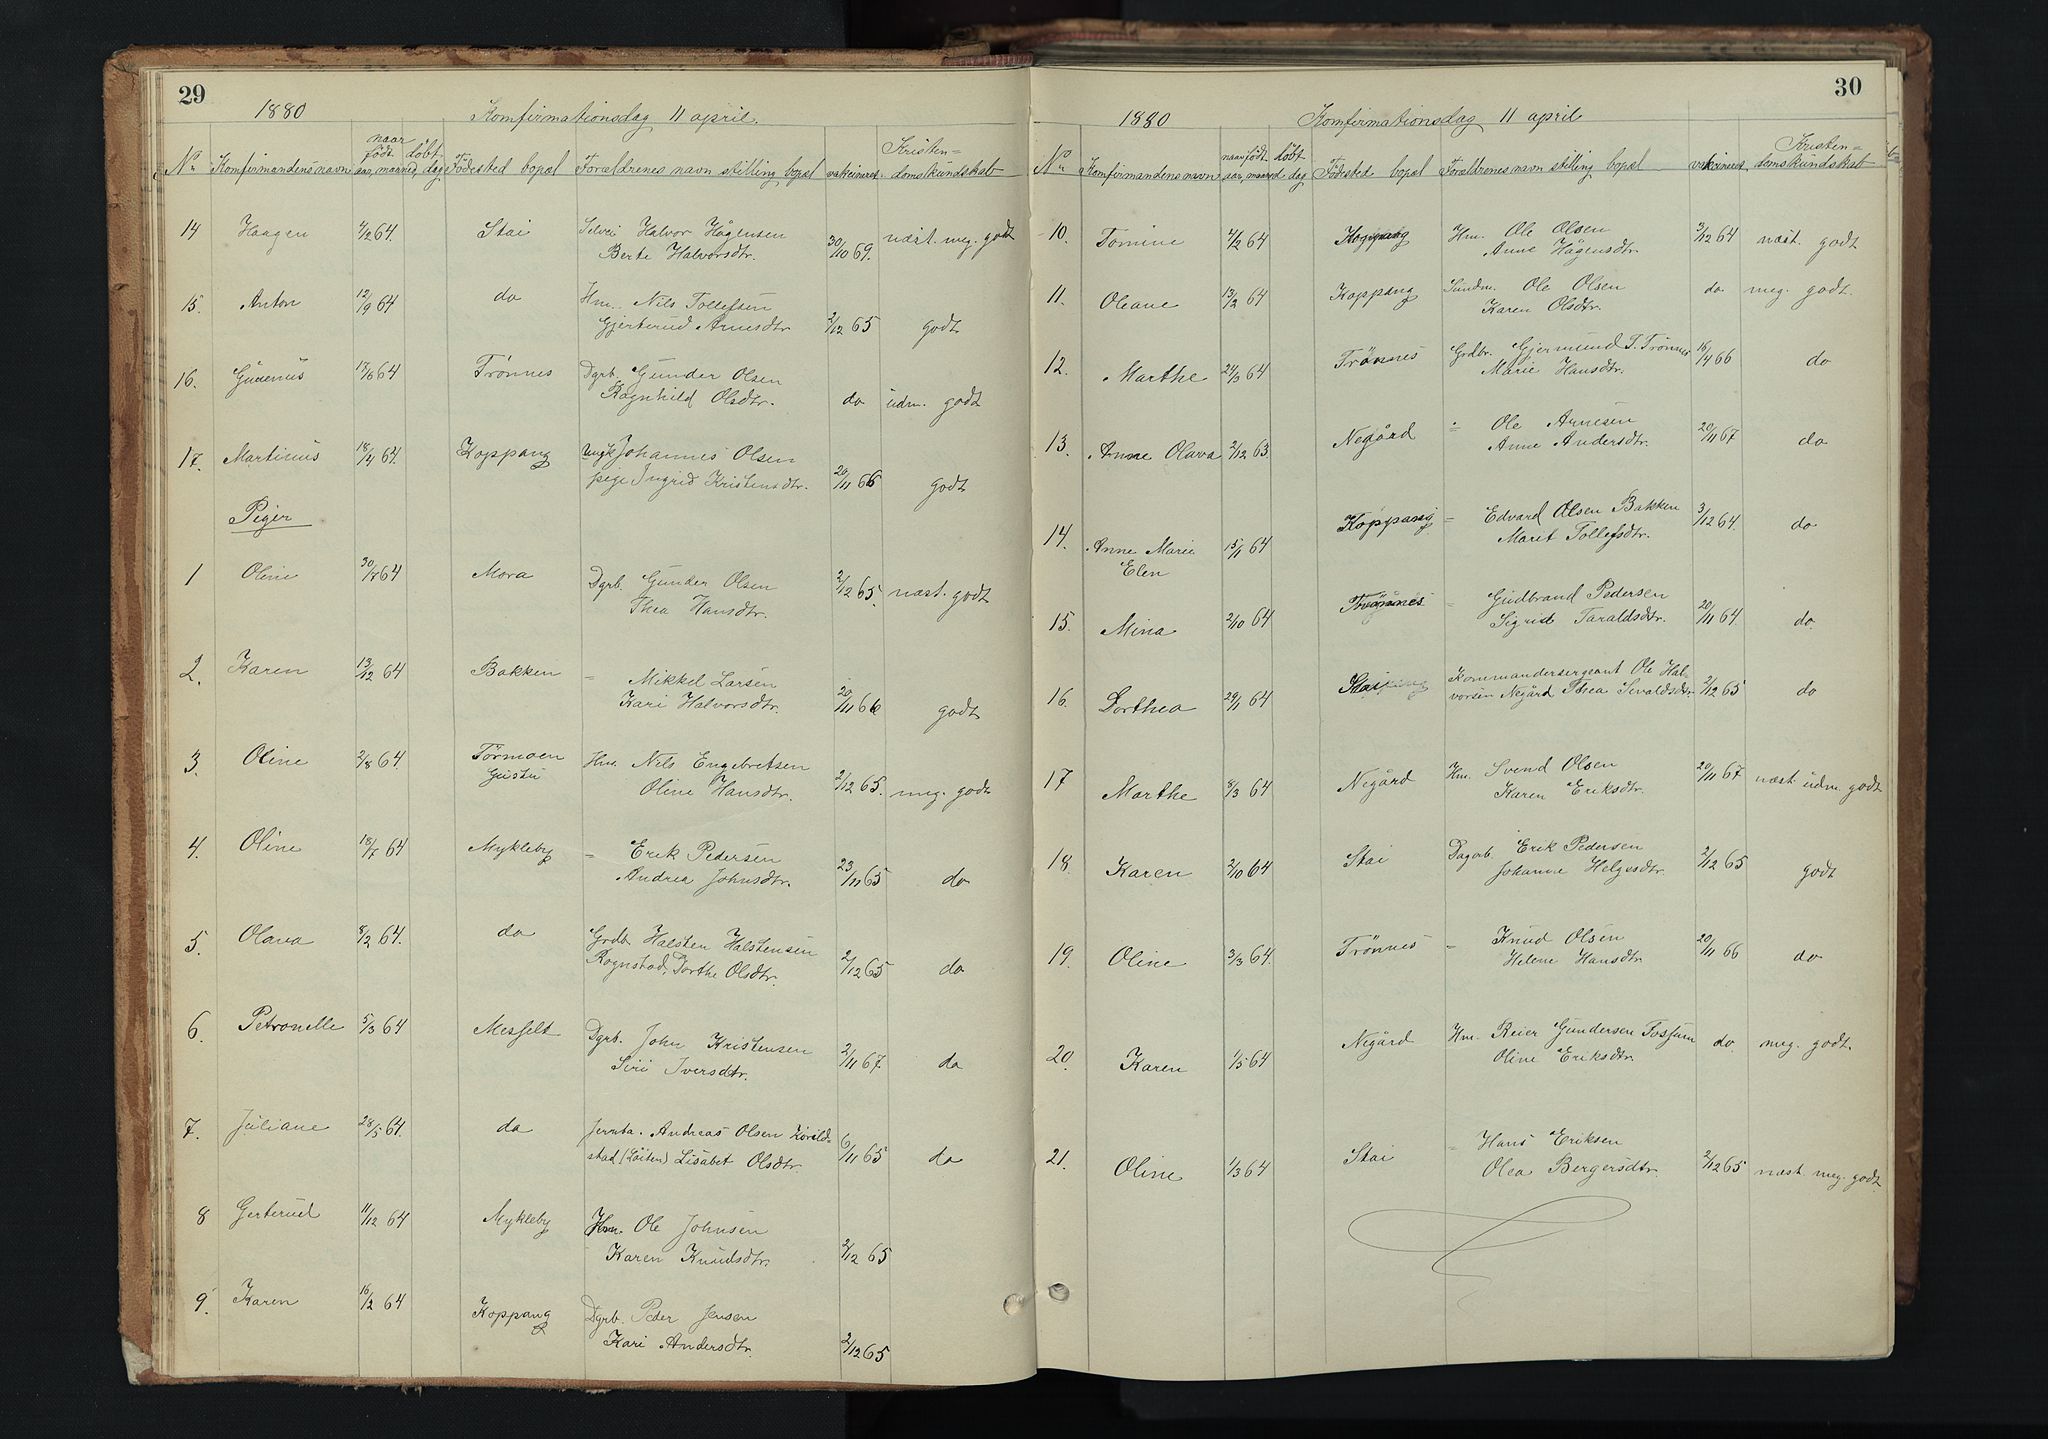 29
1880 Konfirmationsdag 11 april.
No Konfirmandens navn naar født aar, maaned, dag døbt Fødested bopæl Forældrenes navn stilling bopæl vakcineret Kristen=
domskundskab
14 Haagen 4/12 64. Stai Selvei Halvor Hågensen
Berte Halvorsdtr. 30/10 69. næst. meg. godt
15. Anton 12/9 64 do Hm. Nils Tollefsen
Gjerterud Arnesdtr. 2/12 65 godt
16. 17/6 64 Trønnes Dgrb. Gunder Olsen
Ragnhild Olsdtr. do udm. godt
17. Martinus 18/4 64. Koppang Ungk Johannes Olsen
pige Ingrid Kristensdtr. 20/11 66 godt
Piger
1 Oline 30/7 64 Mora Dgrb. Gunder Olsen
Thea Hansdtr. 2/12 65. næst. godt
2. Karen 13/12 64 Bakken = Mikkel Larsen
Kari Halvorsdtr. 20/11 66 godt
3. Oline 2/8 64. Tørmoen Hm. Nils Engebretsen
Oline Hansdtr. 2/12 65. meg. godt
4. Oline 18/7 64 Mykleby = Erik Pedersen
Andrea Johnsdtr. 23/11 65 do
5. Olava 8/2 64. do Grdb. Halsten Halstensen
Rognstad, Dorthe Olsdtr. 2/12 65 do
6. Petronelle 5/3 64 Messelt Dgrb. John Kristensen
Siri Iversdtr. 2/11 67. do
7. Juliane 28/5 64. do Jernba. Andreas Olsen
stad (Løiten) Lisabet Olsdtr. 6/11 65 do
8 Gerterud 11/12 64 Mykleby Hm. Ole Johnsen
Karen Knudsdtr. 2/12 65
9. Karen 16/2 64 Koppang Dgrb. Peder Jensen
Kari Andersdtr. 2/12 65
30
1880 Konfirmationsdag 11 april
No Konfirmandens navn naar født aar, maaned dag døbt Fødested bopæl Forældrenes navn stilling bopæl vakcineret Kristen=
domskundskab
10. Tomine 4/2 64 Koppang Hm. Ole Olsen
Anne Hågensdtr. 3/12 64 næst. godt
11. Oleane 13/2 64 Koppang Sundm. Ole Olsen
Karen Olsdtr. do meg. godt.
12. Marthe 24/3 64 Trönnes Grdbr. Gjermund T. Trönnes
Marie Hansdtr. 16/4 66 do
13. Anne Olava 2/12 63. Negård = Ole Arnesen
Anne Andersdtr. 20/11 67 do
14. Anne Marie
Elen 15/1 64 Koppang = Edvard Olsen Bakken
Marit Tollefsdtr. 3/12 64. do
15. Mina 2/10 64 Trønnes = Gudbrand Pedersen
Sigrid Taraldsdtr. 20/11 64. do.
16. Dorthea 29/1 64 Stai Kommandersergeant Ole Hal-
vorsen Negård Thea Sevaldsdtr. 2/12 65 do
17 Marthe 8/3 64 Negård Hm. Svend Olsen
Karen Eriksdtr. 20/11 67 næst udm. godt
18. Karen 2/10 64 Stai Dagarb. Erik Pedersen
Johanne Helgesdtr. 2/12 65 godt
19. Oline 3/3 64. Trönnes = Knud Olsen
Helene Hansdtr. 20/11 66 do
20. Karen 1/5 64 Negård Hm. Reier Gundersen Fossum
Oline Eriksdtr. do. meg. godt.
21. Oline 1/3 64 Stai = Hans Eriksen
Olea Bergersdtr. 2/12 65 næst meg. godt.